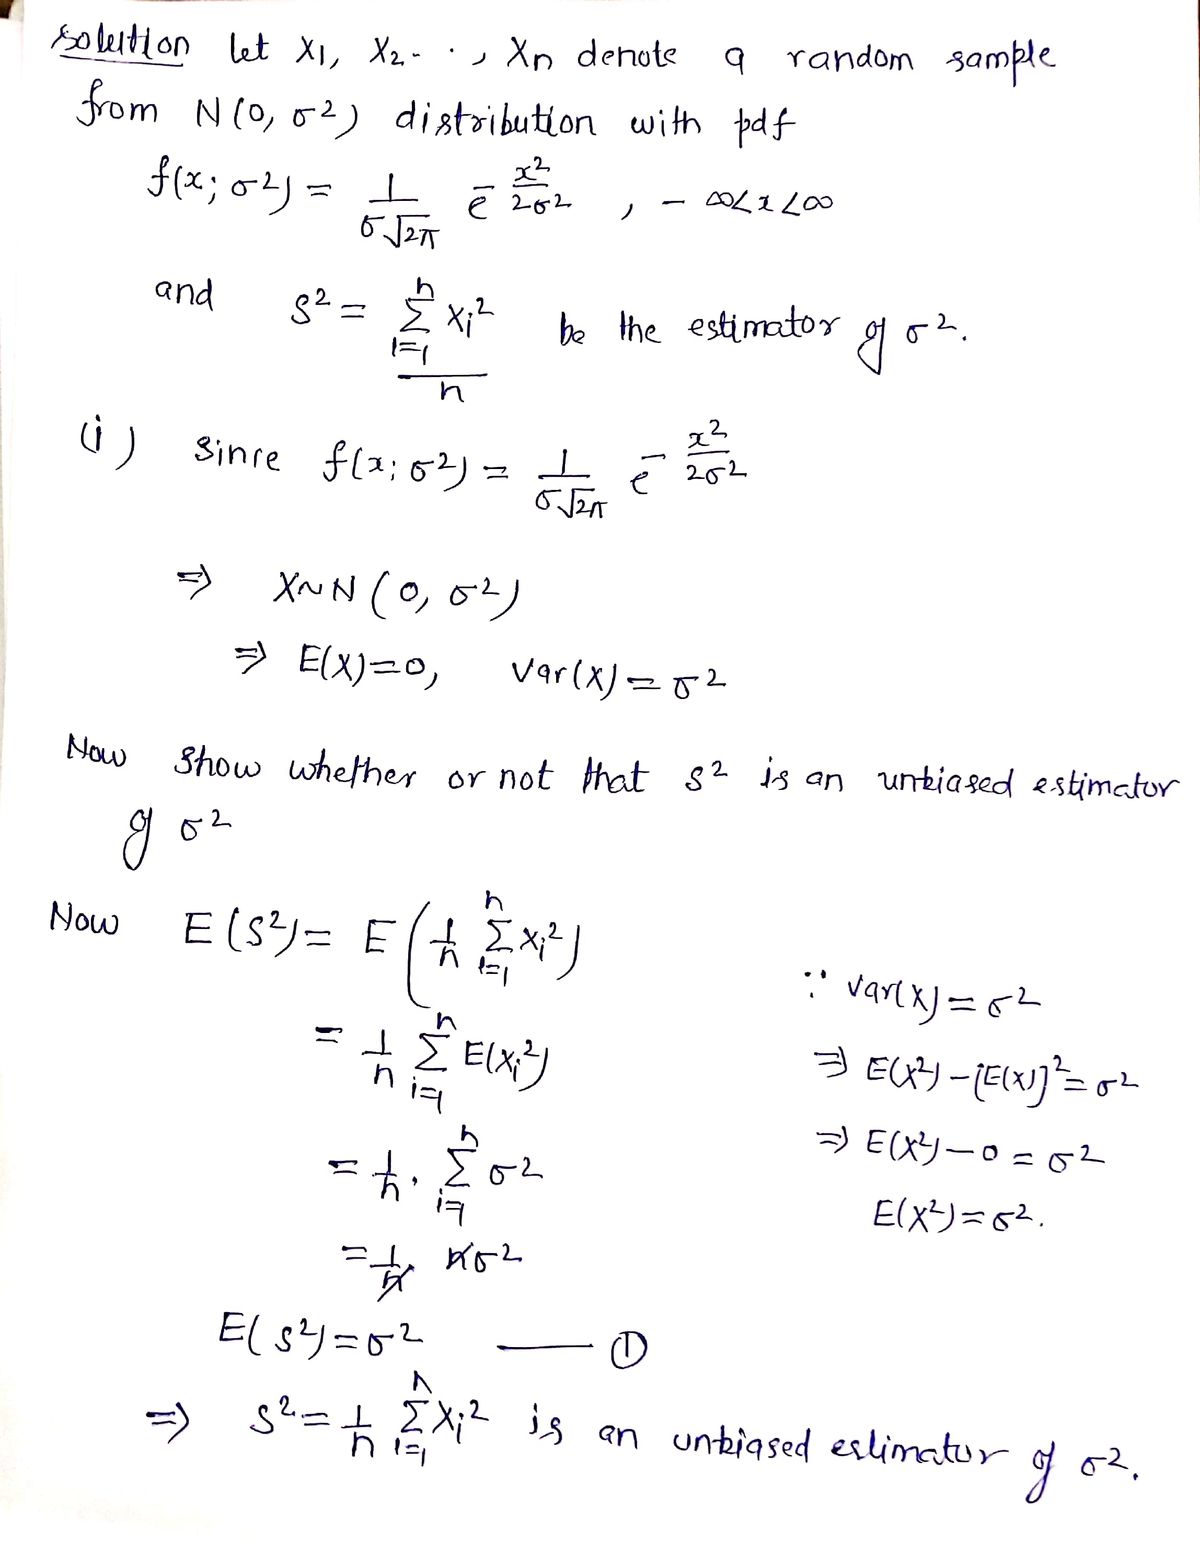 solution let X1, X2- ·, Xn denote a random sample
from N(0, σ²) distribution with pdf
f(x; σ²) = 1/(σ√2π) e^(-x²/2σ²) , -∞<x<∞
and S² = Σ_{i=1}^{n} Xi² / n be the estimator of σ².
(i) Since f(x; σ²) = 1/(σ√2π) e^(-x²/2σ²)
⇒ X~N(0, σ²)
⇒ E(X)=0, Var(X)=σ²
Now show whether or not that S² is an unbiased estimator
of σ²
Now E(S²) = E(1/n Σ_{i=1}^{n} Xi²)
= 1/n Σ_{i=1}^{n} E(Xi²)
= 1/n · Σ_{i=1}^{n} σ²
= 1/n nσ²
E(S²)=σ² —— ①
∵ Var(X)=σ²
⇒ E(X²)-[E(X)]²=σ²
⇒ E(X²)-0=σ²
E(X²)=σ².
⇒ S²=1/n Σ_{i=1}^{n} Xi² is an unbiased estimator of σ².